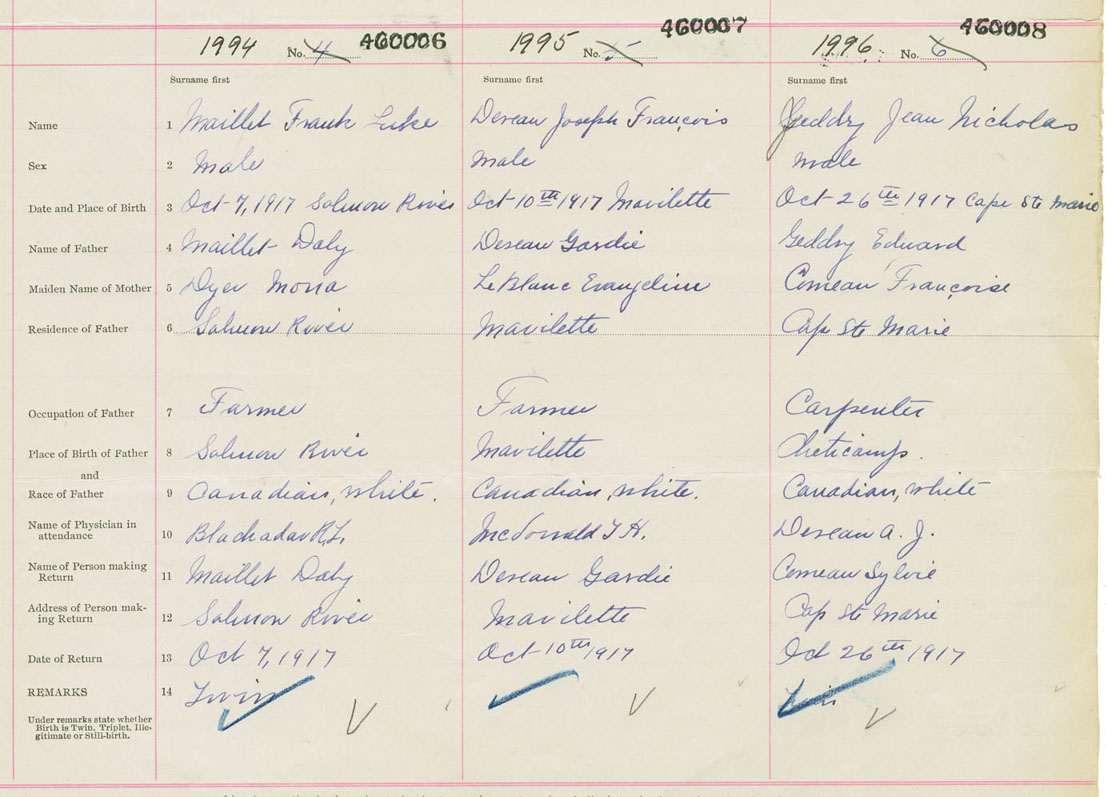 1994 No. 4 460006 1995 No. 5 460007 1996 No. 6 460008
Surname first Surname first Surname first
Name 1 Maillet Frank Luke Deveau Joseph François Geddry Jean Nicholas
Sex 2 Male Male Male
Date and Place of Birth 3 Oct 7, 1917 Salmon River Oct 10th 1917 Mavilette Oct 26th 1917 Cape Ste Marie
Name of Father 4 Maillet Daly Deveau Gardie Geddry Edward
Maiden Name of Mother 5 Dyer Mona LeBlanc Evangeline Comeau Françoise
Residence of Father 6 Salmon River Mavilette Cap Ste Marie
Occupation of Father 7 Farmer Farmer Carpenter
Place of Birth of Father 8 Salmon River Mavilette Cheticamp.
and
Race of Father 9 Canadian, white. Canadian, white. Canadian, white
Name of Physician in
attendance 10 Blackadar R.L. McDonald T H. Deveau A. J.
Name of Person making
Return 11 Maillet Daly Deveau Gardie Comeau Sylvie
Address of Person mak-
ing Return 12 Salmon River Mavilette Cap Ste Marie
Date of Return 13 Oct 7, 1917 Oct 10th 1917 Oct 26th 1917
REMARKS 14 Twin Twin
Under remarks state whether
Birth is Twin, Triplet, Ille-
gitimate or Still-birth.